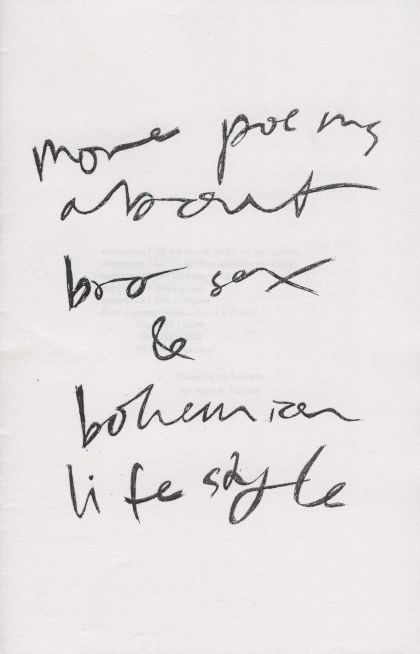 more poems
about
bro sex
&
bohemian
lifestyle